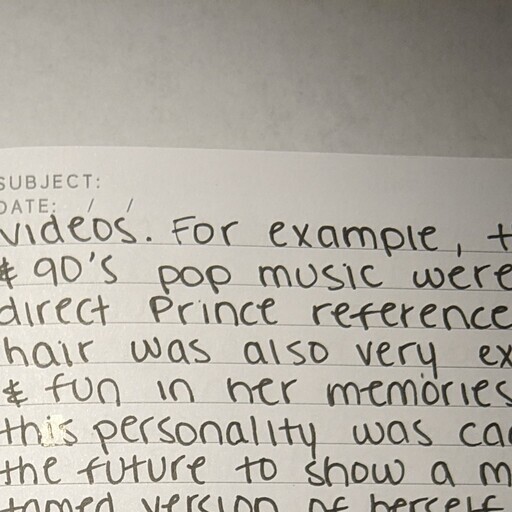 SUBJECT:
DATE: / /
videos. For example, t
& 90's pop music were
direct Prince reference
hair was also very ex
& fun in her memories
this personality was ca
the future to show a m
tamed version of herself